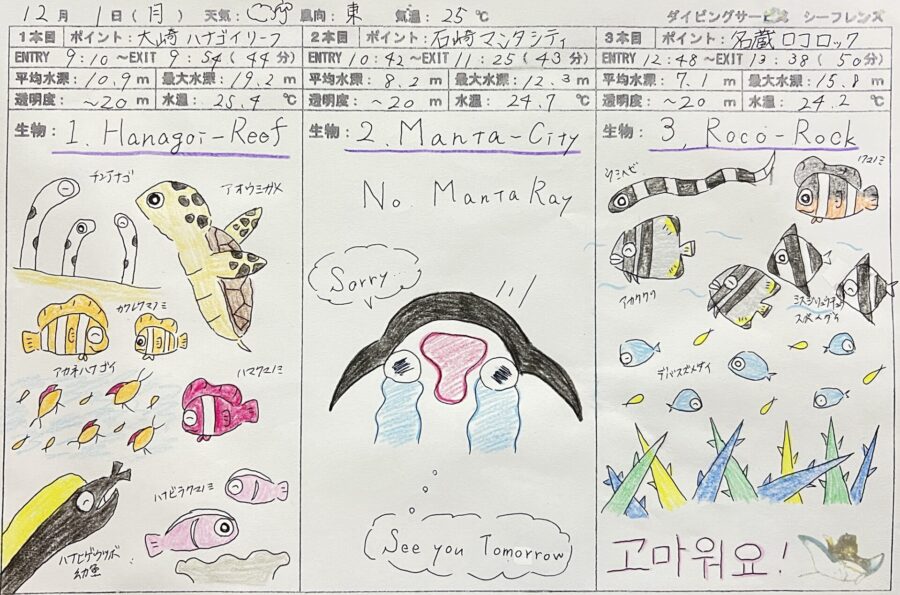 12月 1日(月) 天気: 風向: 東 気温: 25℃ ダイビングサービス シーフレンズ
1本目 ポイント: 大崎 ハナゴイリーフ
ENTRY 9:10 ～EXIT 9:54 (44分)
平均水深: 10.9m 最大水深: 19.2m
透明度: ～20m 水温: 25.4℃
生物: 1. Hanagoi-Reef
チンアナゴ
アオウミガメ
カクレクマノミ
アカネハナゴイ
ハマクマノミ
ハナビラクマノミ
ハナヒゲウツボ
幼魚
2本目 ポイント: 石崎 マンタシティ
ENTRY 10:42 ～EXIT 11:25 (43分)
平均水深: 8.2m 最大水深: 12.3m
透明度: ～20m 水温: 24.7℃
生物: 2. Manta-City
No. Manta Ray
Sorry...
See you Tomorrow
3本目 ポイント: 名蔵ロコロック
ENTRY 12:48 ～EXIT 13:38 (50分)
平均水深: 7.1m 最大水深: 15.8m
透明度: ～20m 水温: 24.2℃
生物: 3. Roco-Rock
ウミヘビ
クマノミ
スズメダイ
デバスズメダイ
고마워요!